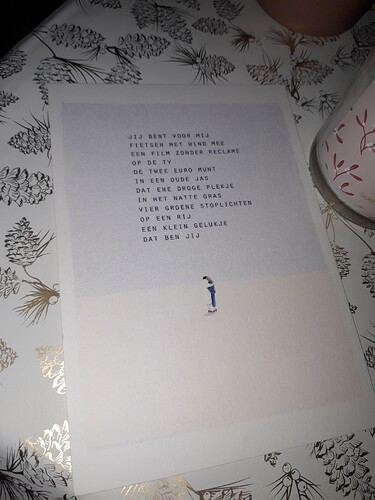 JIJ BENT VOOR MIJ
FIETSEN MET WIND MEE
EEN FILM ZONDER RECLAME
OP DE TV
DE TWEE EURO MUNT
IN EEN OUDE JAS
DAT ENE DROGE PLEKJE
IN HET NATTE GRAS
VIER GROENE STOPLICHTEN
OP EEN RIJ
EEN KLEIN GELUKJE
DAT BEN JIJ